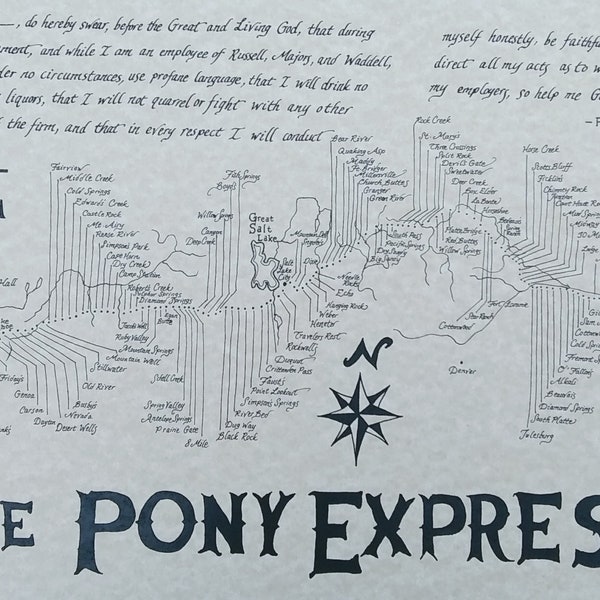 —, do hereby swear, before the Great and Living God, that during
ment, and while I am an employee of Russell, Majors, and Waddell,
der no circumstances, use profane language, that I will drink no
liquors, that I will not quarrel or fight with any other
the firm, and that in every respect I will conduct
myself honestly, be faithfu
direct all my acts as to w
my employers, so help me G
Fairview
Middle Creek
Cold Springs
Edwards Creek
Castle Rock
Mt. Airy
Reese River
Simpsons Park
Cape Horn
Dry Creek
Camp Station
Roberts Creek
Sulphur Springs
Diamond Springs
Hall
Fish Springs
Boyds
Willow Springs
Canyon
Deep Creek
Egan
Butte
Great
Salt
Lake
Salt
Lake
City
Bear River
Quaking Asp
Muddy
Ft. Bridger
Millersville
Church Buttes
Granger
Green River
Mountain Dell
Dixie
Needle
Rock
Echo
Hanging Rock
Weber
Heneter
Travelers Rest
Rockwells
Dugout
Crittenden Pass
Fausts
Point Lookout
Simpsons Springs
River Bed
Dug Way
Black Rock
Rock Creek
St. Marys
Three Crossings
Split Rock
Devil's Gate
Sweetwater
Deer Creek
Box Elder
La Bonte
Horseshoe
South Pass
Pacific Springs
Dry Sandy
Big Sandy
Platte Bridge
Red Butte
Willow Springs
Horse Creek
Scotts Bluff
Ficklins
Chimney Rock
Midway
Fort Laramie
Star Ranch
Cottonwood
Denver
Cottonwood
Cold Spri
Fremont S
O'Fallons
Alkali
Beauvais
Diamond Springs
South Platte
Julesburg
Fridays
Genoa
Carson
Dayton
Nevada
Desert Wells
Busbys
Old River
Stillwater
Mountain Well
Mountain Springs
Ruby Valley
Jacobs Well
Schell Creek
Spring Valley
Antelope Springs
Prairie Gate
8 Mile
N
E PONY EXPRES